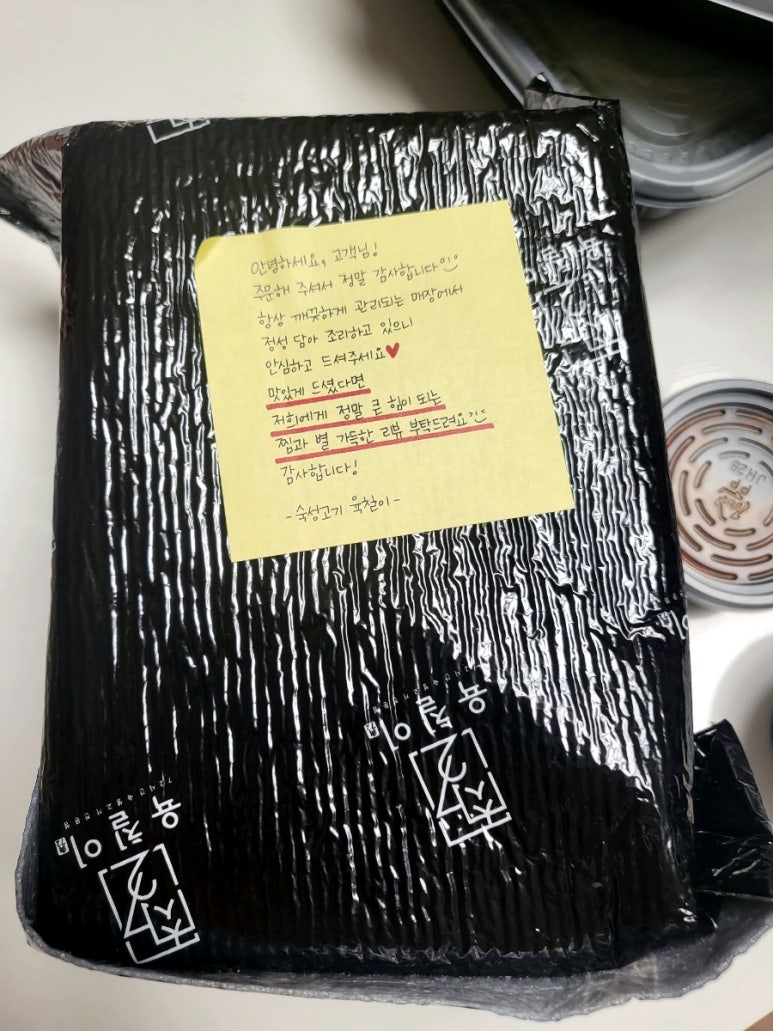 안녕하세요, 고객님!
주문해 주셔서 정말 감사합니다
항상 깨끗하게 관리되는 매장에서
정성 담아 조리하고 있으니
안심하고 드셔주세요♥
맛있게 드셨다면
저희에게 정말 큰 힘이 되는
찜과 별 가득한 리뷰 부탁드려요
감사합니다!
-숙성고기 육철이-
육철이
육철이
JH 28
PP